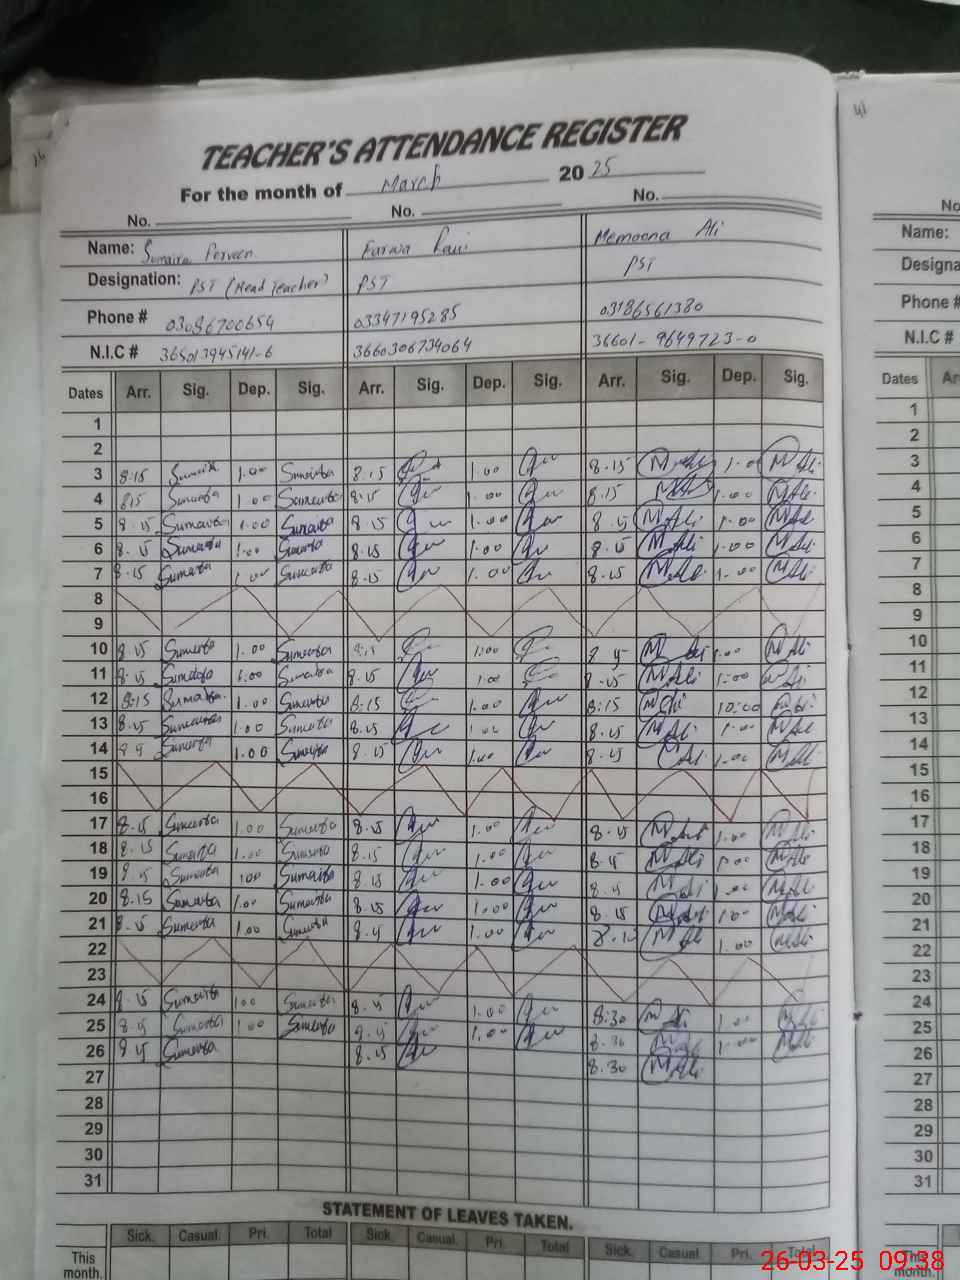 TEACHER'S ATTENDANCE REGISTER
For the month of March 2025
No. No. No.
Name: Sumaira Perveen Farwa Memoona Ali
Designation: PST (Head Teacher) PST PST
Phone # 03086700654 03347195285 03186561380
N.I.C # 365013945141-6 3660306734064 36601-9649723-0
Dates Arr. Sig. Dep. Sig. Arr. Sig. Dep. Sig. Arr. Sig. Dep. Sig.
1
2
3 8.15 Sumaira 1.00 Sumaira 8.15 1.00 8.15 M.Ali 1.00 M.Ali
4 8.15 Sumaira 1.00 Sumaira 8.15 1.00 8.15 M.Ali 1.00 M.Ali
5 8.15 Sumaira 1.00 Sumaira 8.15 1.00 8.15 M.Ali 1.00 M.Ali
6 8.15 Sumaira 1.00 Sumaira 8.15 1.00 8.15 M.Ali 1.00 M.Ali
7 8.15 Sumaira 1.00 Sumaira 8.15 1.00 8.15 M.Ali 1.00 M.Ali
8
9
10 8.15 Sumaira 1.00 Sumaira 8.15 1.00 M.Ali 1.00 M.Ali
11 8.15 Sumaira 1.00 Sumaira 8.15 1.00 8.15 M.Ali 1.00 M.Ali
12 8:15 Sumaira 1.00 Sumaira 8:15 1.00 8:15 M.Ali 10:00 M.Ali
13 8.15 Sumaira 1.00 Sumaira 8.15 1.00 8.15 M.Ali 1.00 M.Ali
14 Sumaira 1.00 Sumaira 8.15 1.00 8.15 M.Ali 1.00 M.Ali
15
16
17 8.15 Sumaira 1.00 Sumaira 8.15 1.00 8.15 M.Ali 1.00 M.Ali
18 8.15 Sumaira 1.00 Sumaira 8.15 1.00 M.Ali 1.00 M.Ali
19 8.15 Sumaira 1.00 Sumaira 8.15 1.00 M.Ali 1.00 M.Ali
20 8.15 Sumaira 1.00 Sumaira 8.15 1.00 8.15 M.Ali 1.00 M.Ali
21 8.15 Sumaira 1.00 Sumaira 1.00 M.Ali 1.00 M.Ali
22
23
24 8.15 Sumaira 1.00 Sumaira 1.00 8:30 M.Ali 1.00 M.Ali
25 Sumaira 1.00 Sumaira 1.00 8.30 M.Ali 1.00 M.Ali
26 Sumaira 8.15 8.30 M.Ali
27
28
29
30
31
STATEMENT OF LEAVES TAKEN.
Sick. Casual. Pri. Total Sick. Casual. Pri. Total Sick. Casual Pri. Total
This
month.
41
No
Name:
Designa
Phone #
N.I.C #
Dates Ar
1
2
3
4
5
6
7
8
9
10
11
12
13
14
15
16
17
18
19
20
21
22
23
24
25
26
27
28
29
30
31
This
month.
26-03-25 09:38